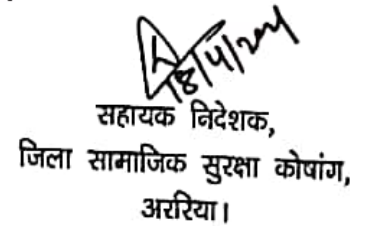 सहायक निदेशक,
जिला सामाजिक सुरक्षा कोषांग,
अररिया।